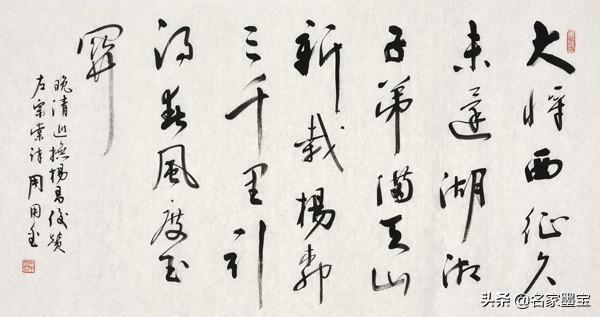 大將西征久
未還湖湘
子弟滿天山
新栽楊柳
三千里引
得春風度玉
關
晚清巡撫楊昌俊
左宗棠诗 周
头条 @名家墨宝